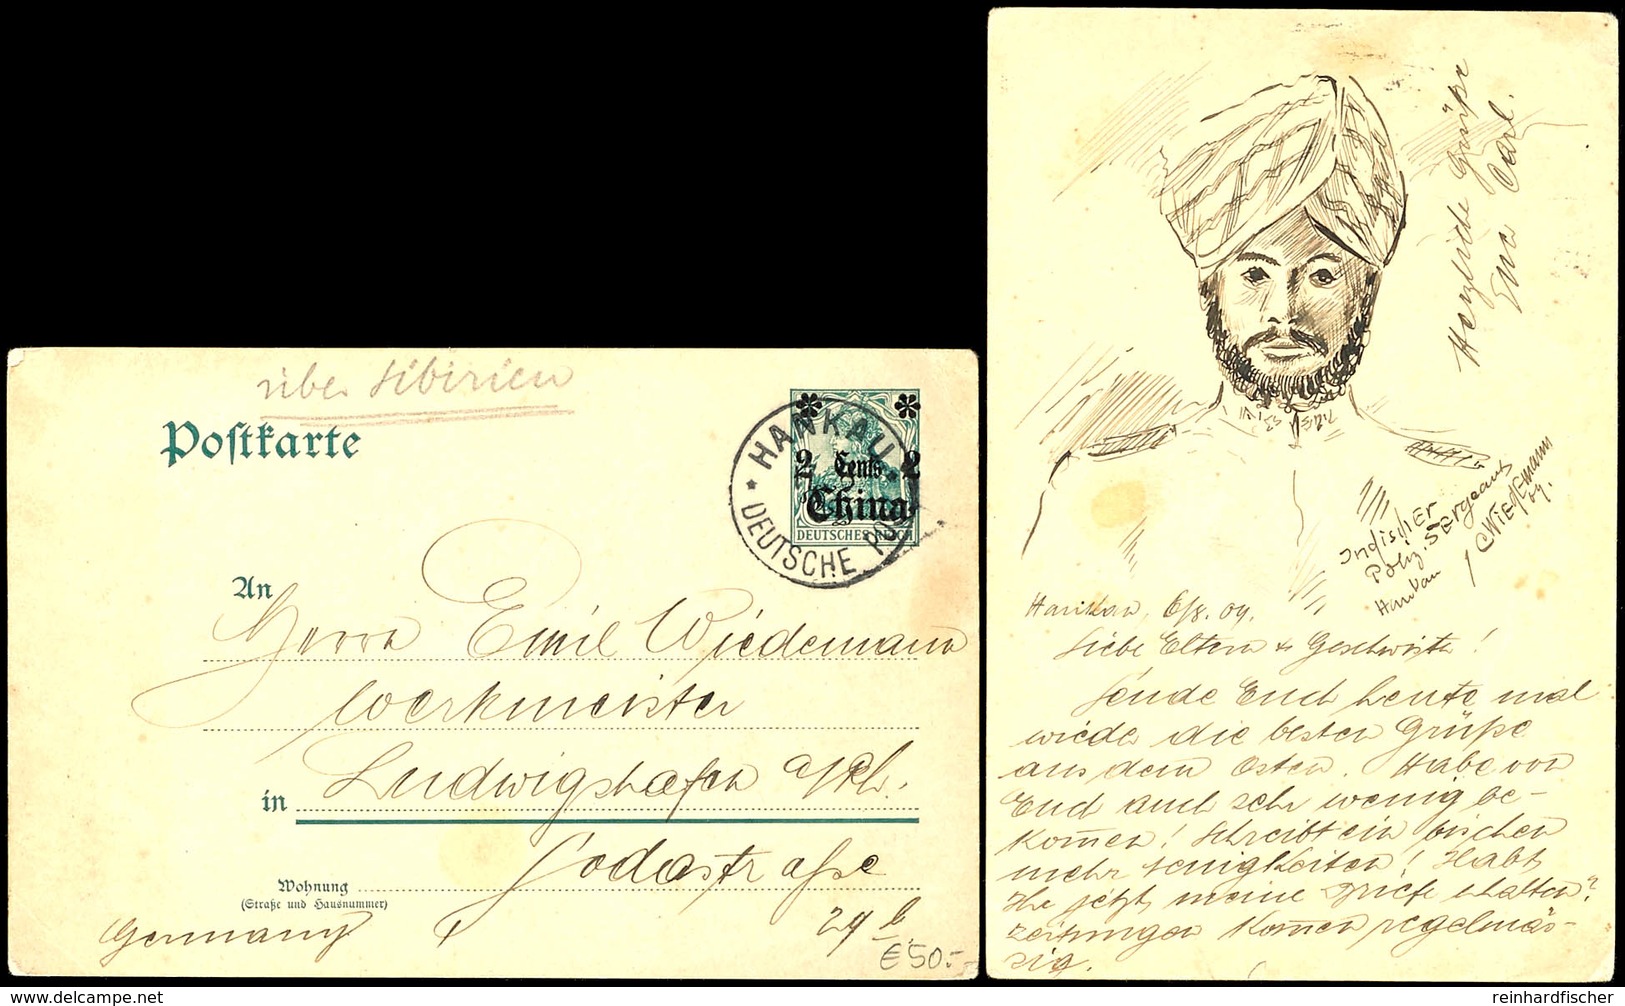 über Sibirien
Postkarte
HANKAU
DEUTSCHE POST
2 Cents 2
China
DEUTSCHES REICH
An
Herrn Emil Wiedemann
Werkmeister
in Ludwigshafen a/Rh.
Wohnung
(Straße und Hausnummer)
Sodastraße
Germany
29
€50.-
Herzliche Grüße
Euer Carl.
Indischer
Poliz. Sergeant
Hankau
09.
Hankau, 6/8. 09.
Liebe Eltern & Geschwister!
Sende Euch heute mal
wieder die besten Grüße
aus dem Osten. Habe von
Euch auch sehr wenig be-
komen! Schreibt ein bischen
mehr Neuigkeiten! Habt
Ihr jetzt meine Briefe erhalten?
Zeitungen komen regelmäs-
sig.
www.delcampe.net
reinhardfischer